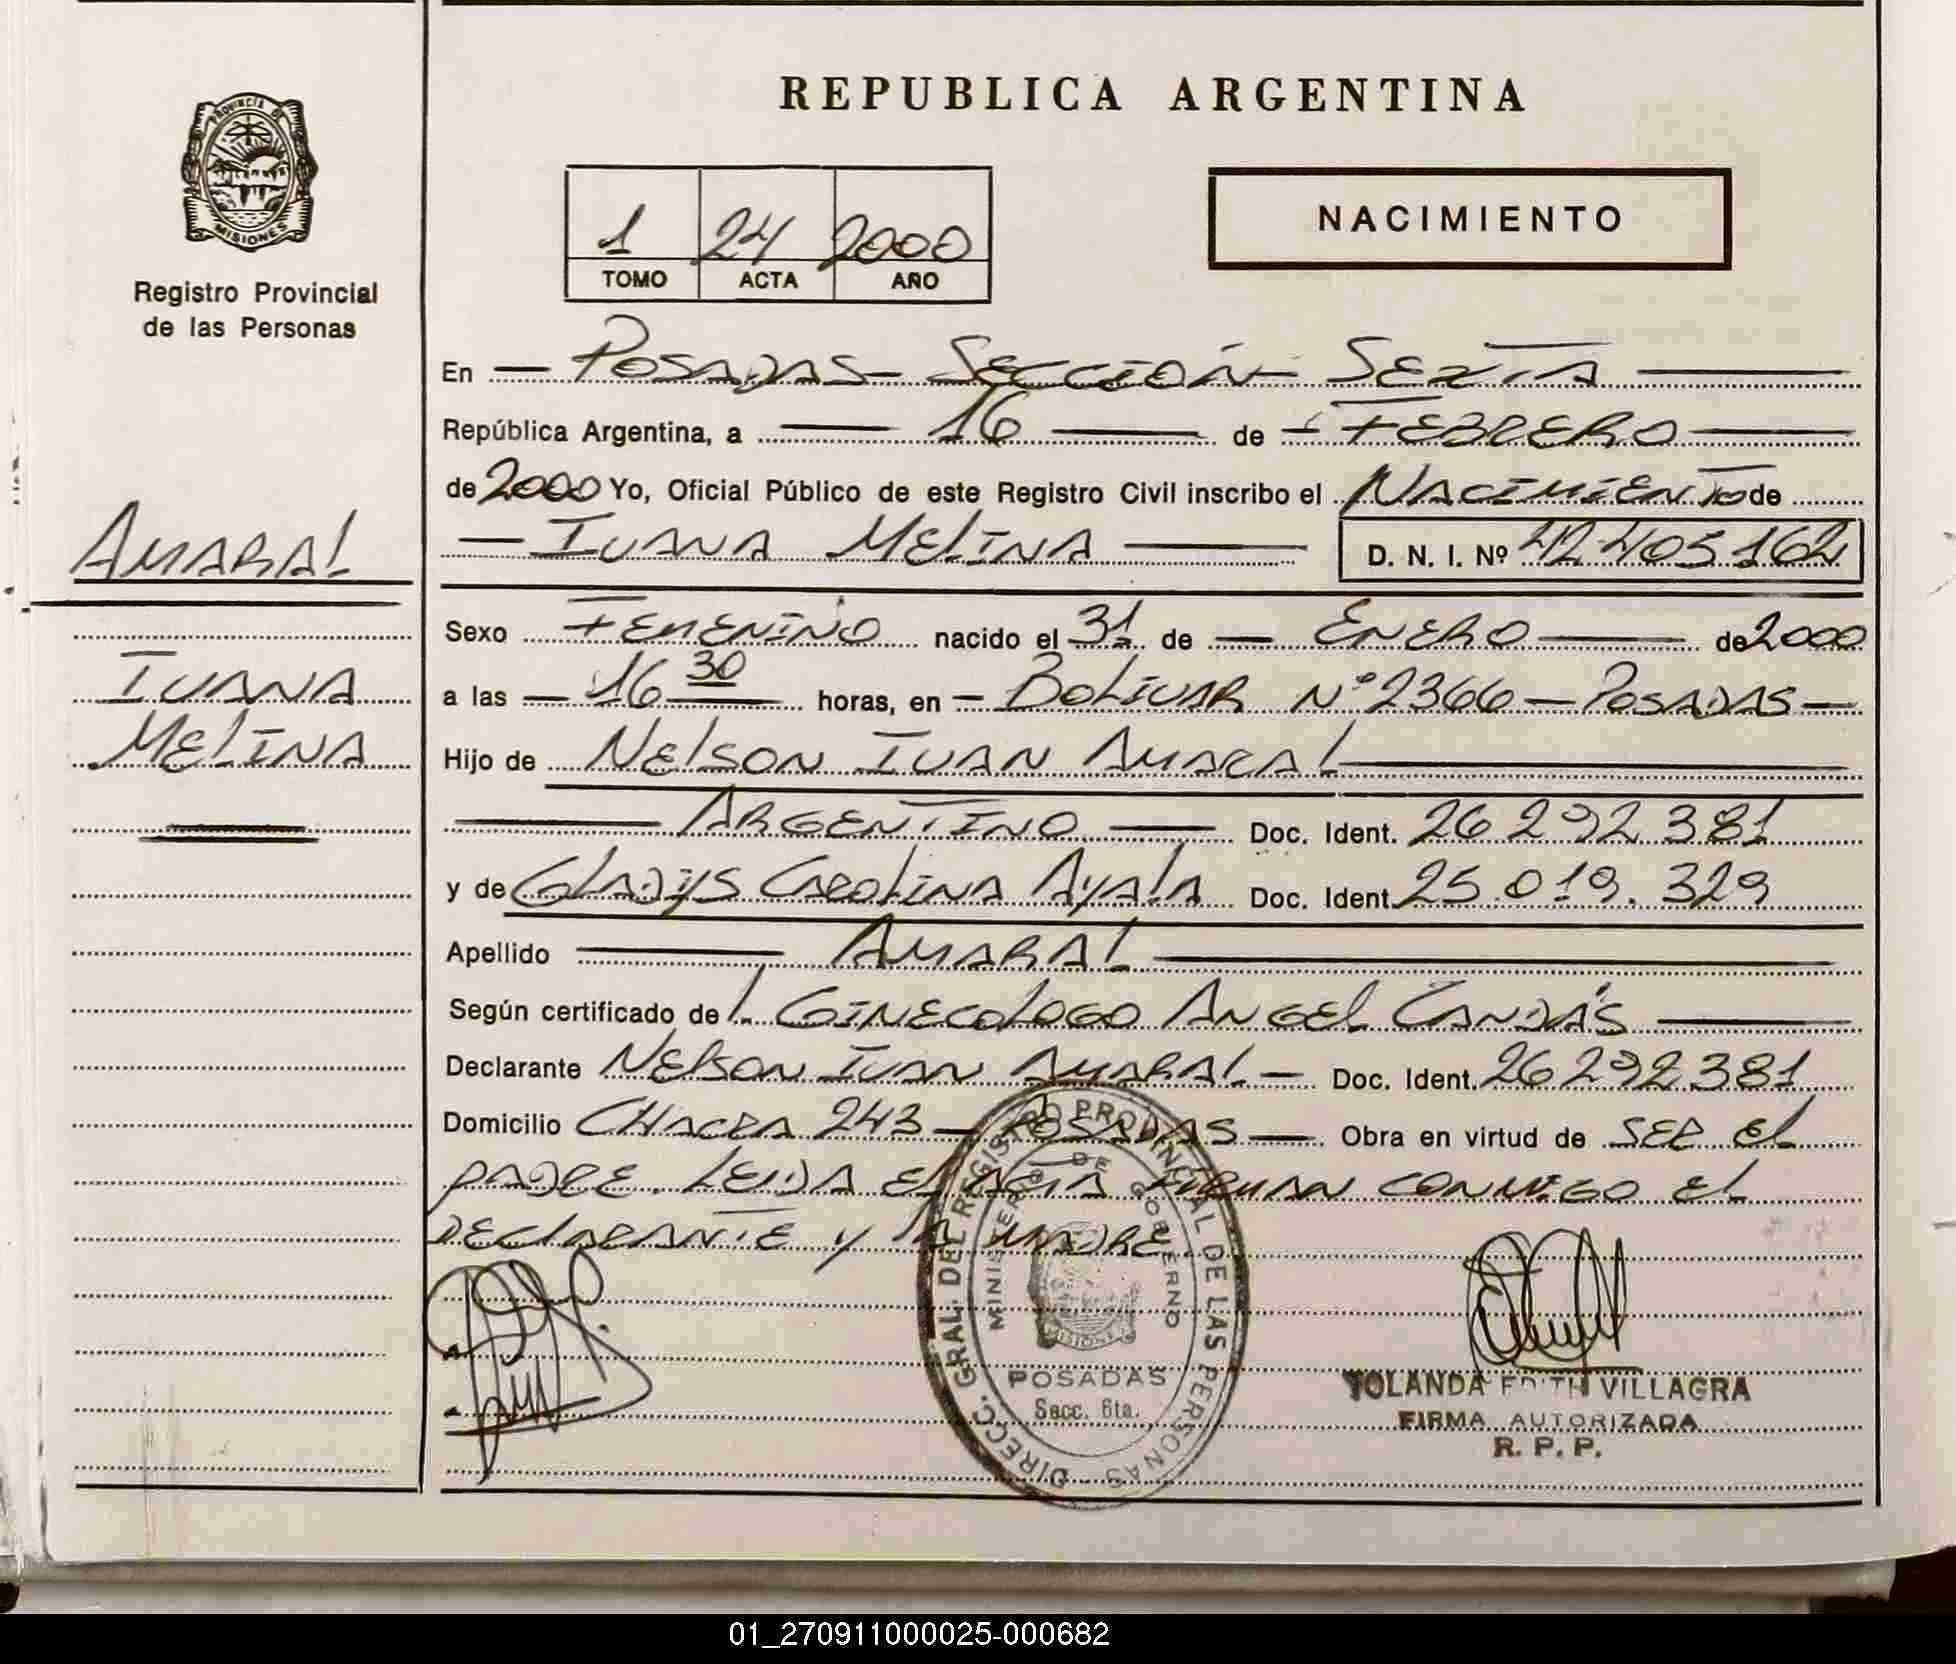 PROVINCIA DE
MISIONES
Registro Provincial
de las Personas
AMARAL
IVANA
MELINA
REPUBLICA ARGENTINA
1 24 2000
TOMO ACTA AÑO
NACIMIENTO
En — POSADAS - SECCIÓN - SEXTA —
República Argentina, a — 16 — de - FEBRERO —
de 2000 Yo, Oficial Público de este Registro Civil inscribo el NACIMIENTO de
— IVANA MELINA — D. N. I. Nº 42.405.162
Sexo FEMENINO nacido el 31 de — ENERO — de 2000
a las — 16 30 — horas, en — BOLIVAR Nº 2366 — POSADAS —
Hijo de NELSON IVAN AMARAL —
— ARGENTINO — Doc. Ident. 26 292 381
y de GLADYS CAROLINA AYALA Doc. Ident. 25.019.329
Apellido — AMARAL —
Según certificado del GINECOLOGO ANGEL CANDÁS —
Declarante NELSON IVAN AMARAL — Doc. Ident. 26 292 381
Domicilio CHACRA 243 — POSADAS — Obra en virtud de SER EL
PADRE. LEIDA EL ACTA FIRMAN CONMIGO EL
DECLARANTE Y LA MADRE
DIRECC. GRAL. DEL REGISTRO PROVINCIAL DE LAS PERSONAS
MINISTERIO DE GOBIERNO
MISIONES
POSADAS
Secc. 6ta.
YOLANDA EDITH VILLAGRA
FIRMA AUTORIZADA
R. P. P.
01_270911000025-000682